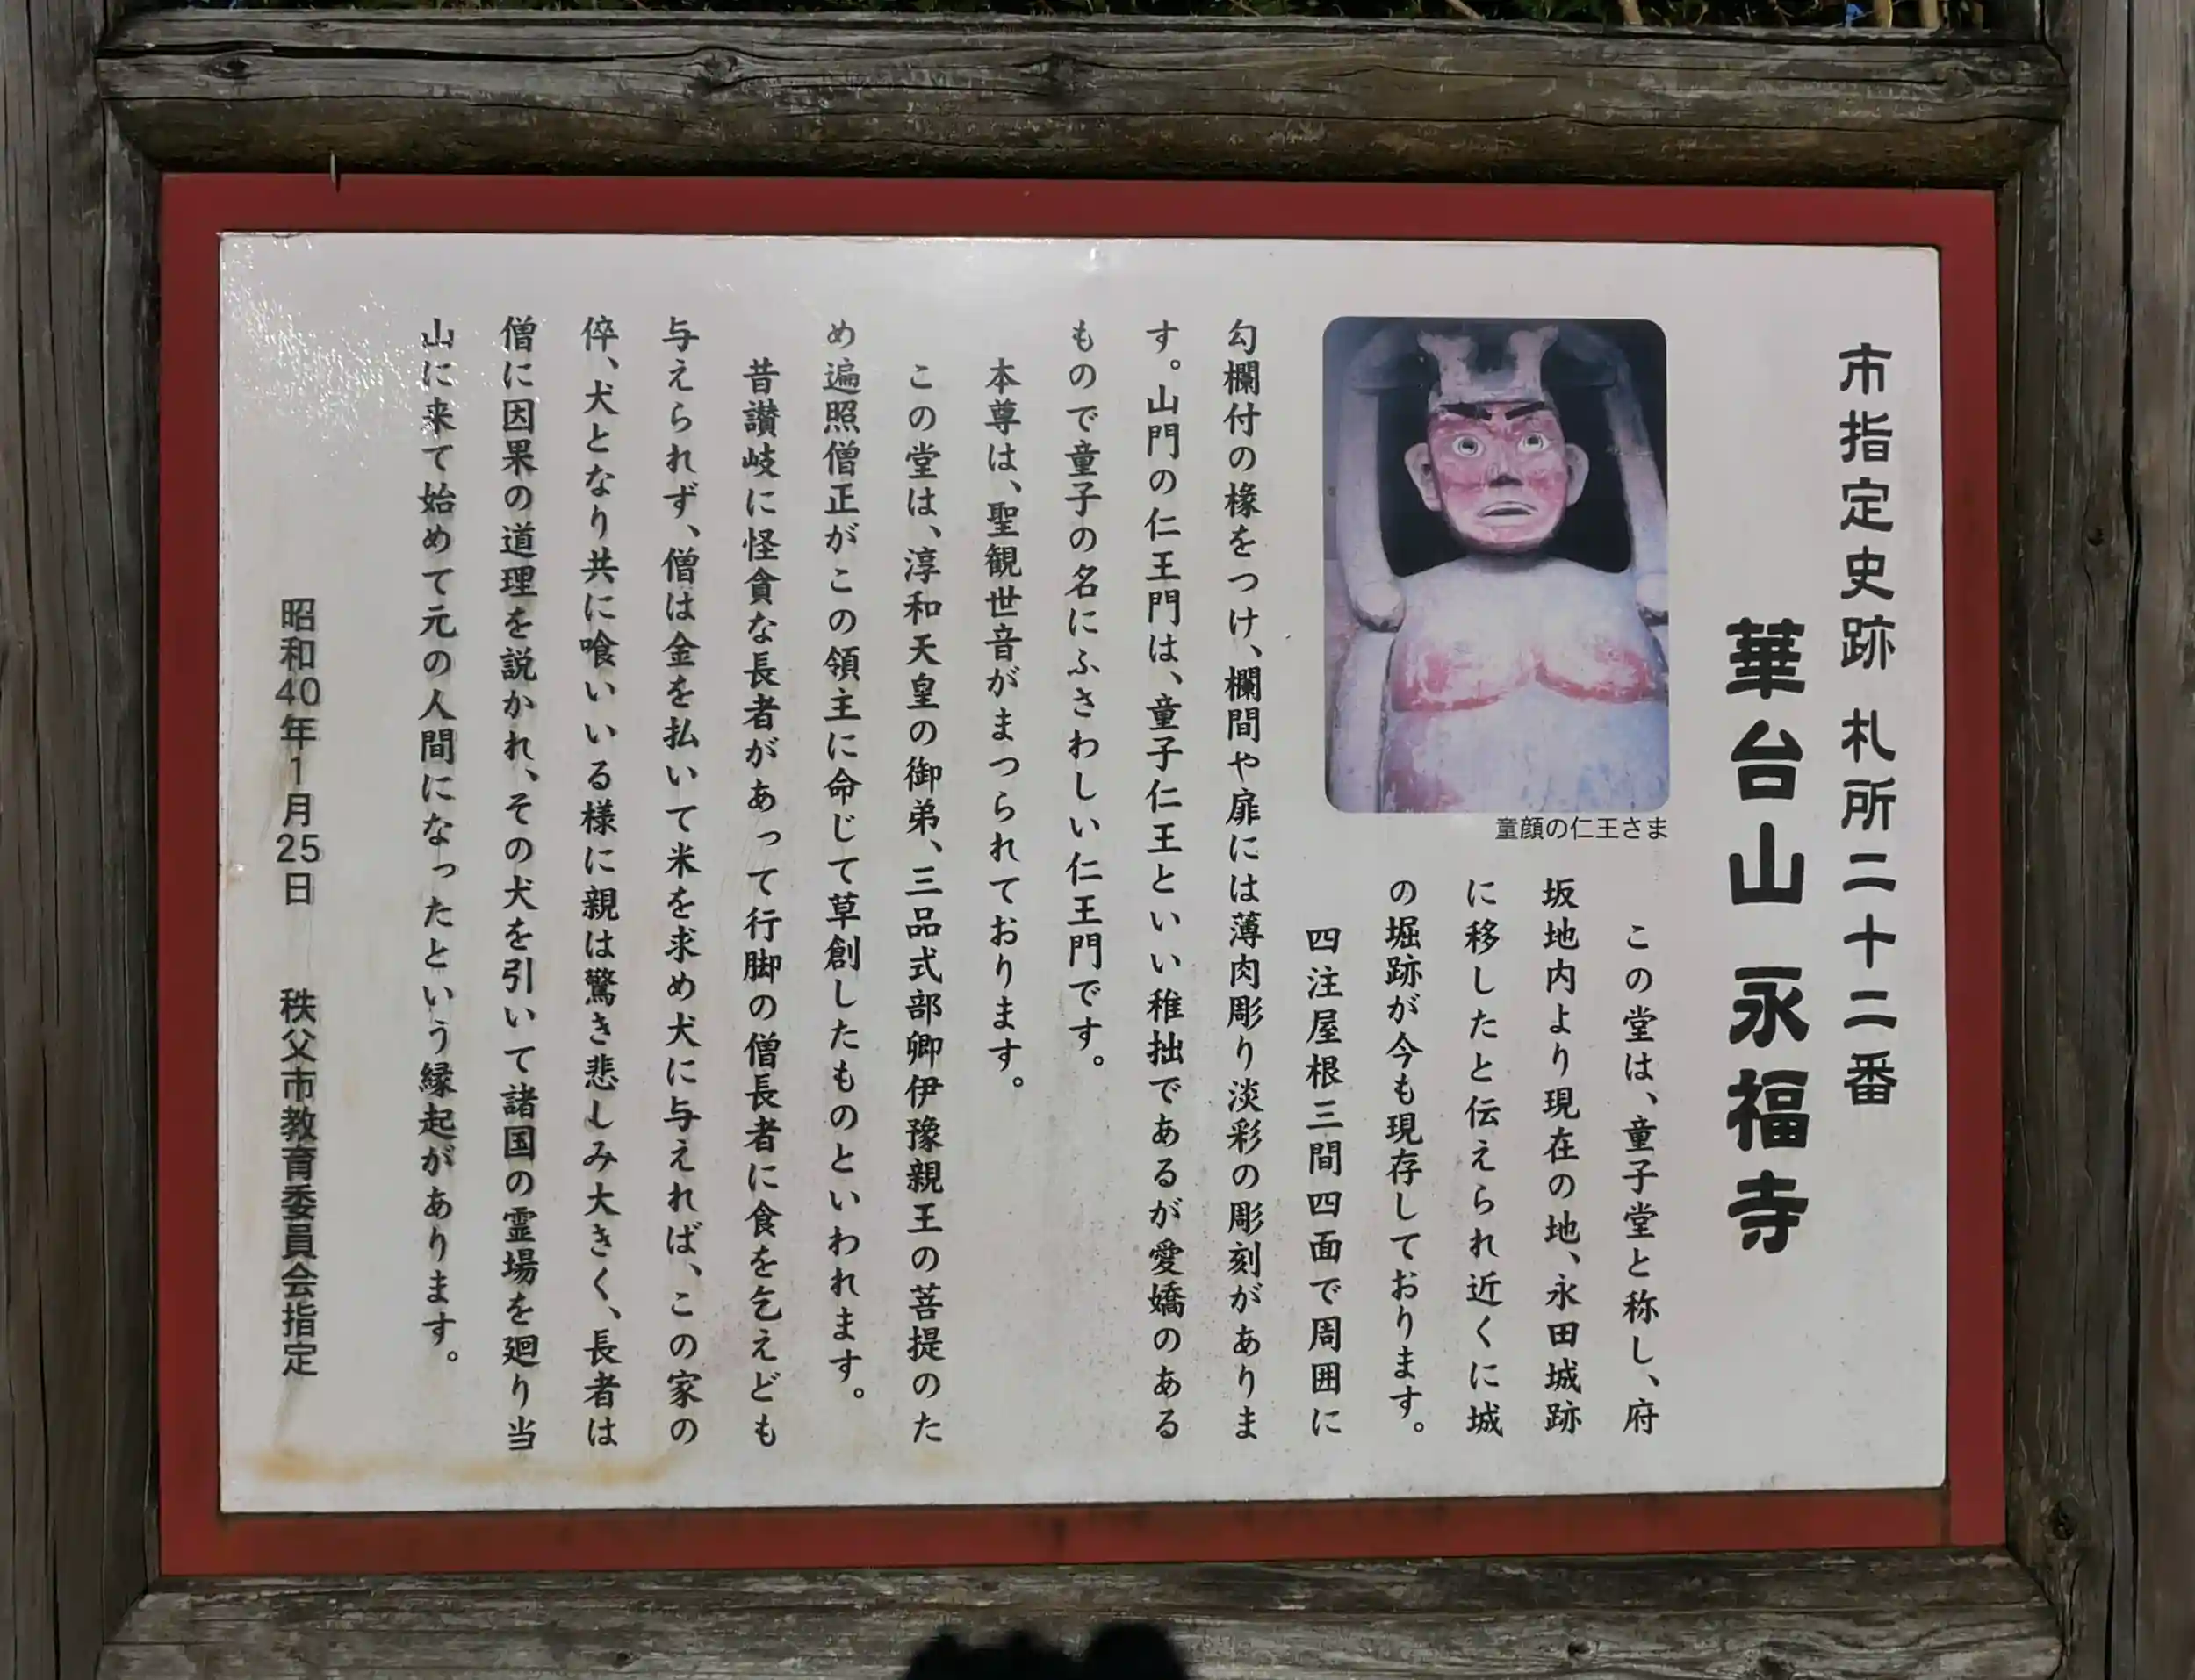 市指定史跡 札所二十二番
華台山 永福寺
童顔の仁王さま
この堂は、童子堂と称し、府
坂地内より現在の地、永田城跡
に移したと伝えられ近くに城
の堀跡が今も現存しております。
四注屋根三間四面で周囲に
勾欄付の椽をつけ、欄間や扉には薄肉彫り淡彩の彫刻がありま
す。山門の仁王門は、童子仁王といい稚拙であるが愛嬌のある
もので童子の名にふさわしい仁王門です。
本尊は、聖観世音がまつられております。
この堂は、淳和天皇の御弟、三品式部卿伊豫親王の菩提のた
め遍照僧正がこの領主に命じて草創したものといわれます。
昔讃岐に怪貪な長者があって行脚の僧長者に食を乞えども
与えられず、僧は金を払いて米を求め犬に与えれば、この家の
倅、犬となり共に喰いいる様に親は驚き悲しみ大きく、長者は
僧に因果の道理を説かれ、その犬を引いて諸国の霊場を廻り当
山に来て始めて元の人間になったという縁起があります。
昭和40年1月25日 秩父市教育委員会指定